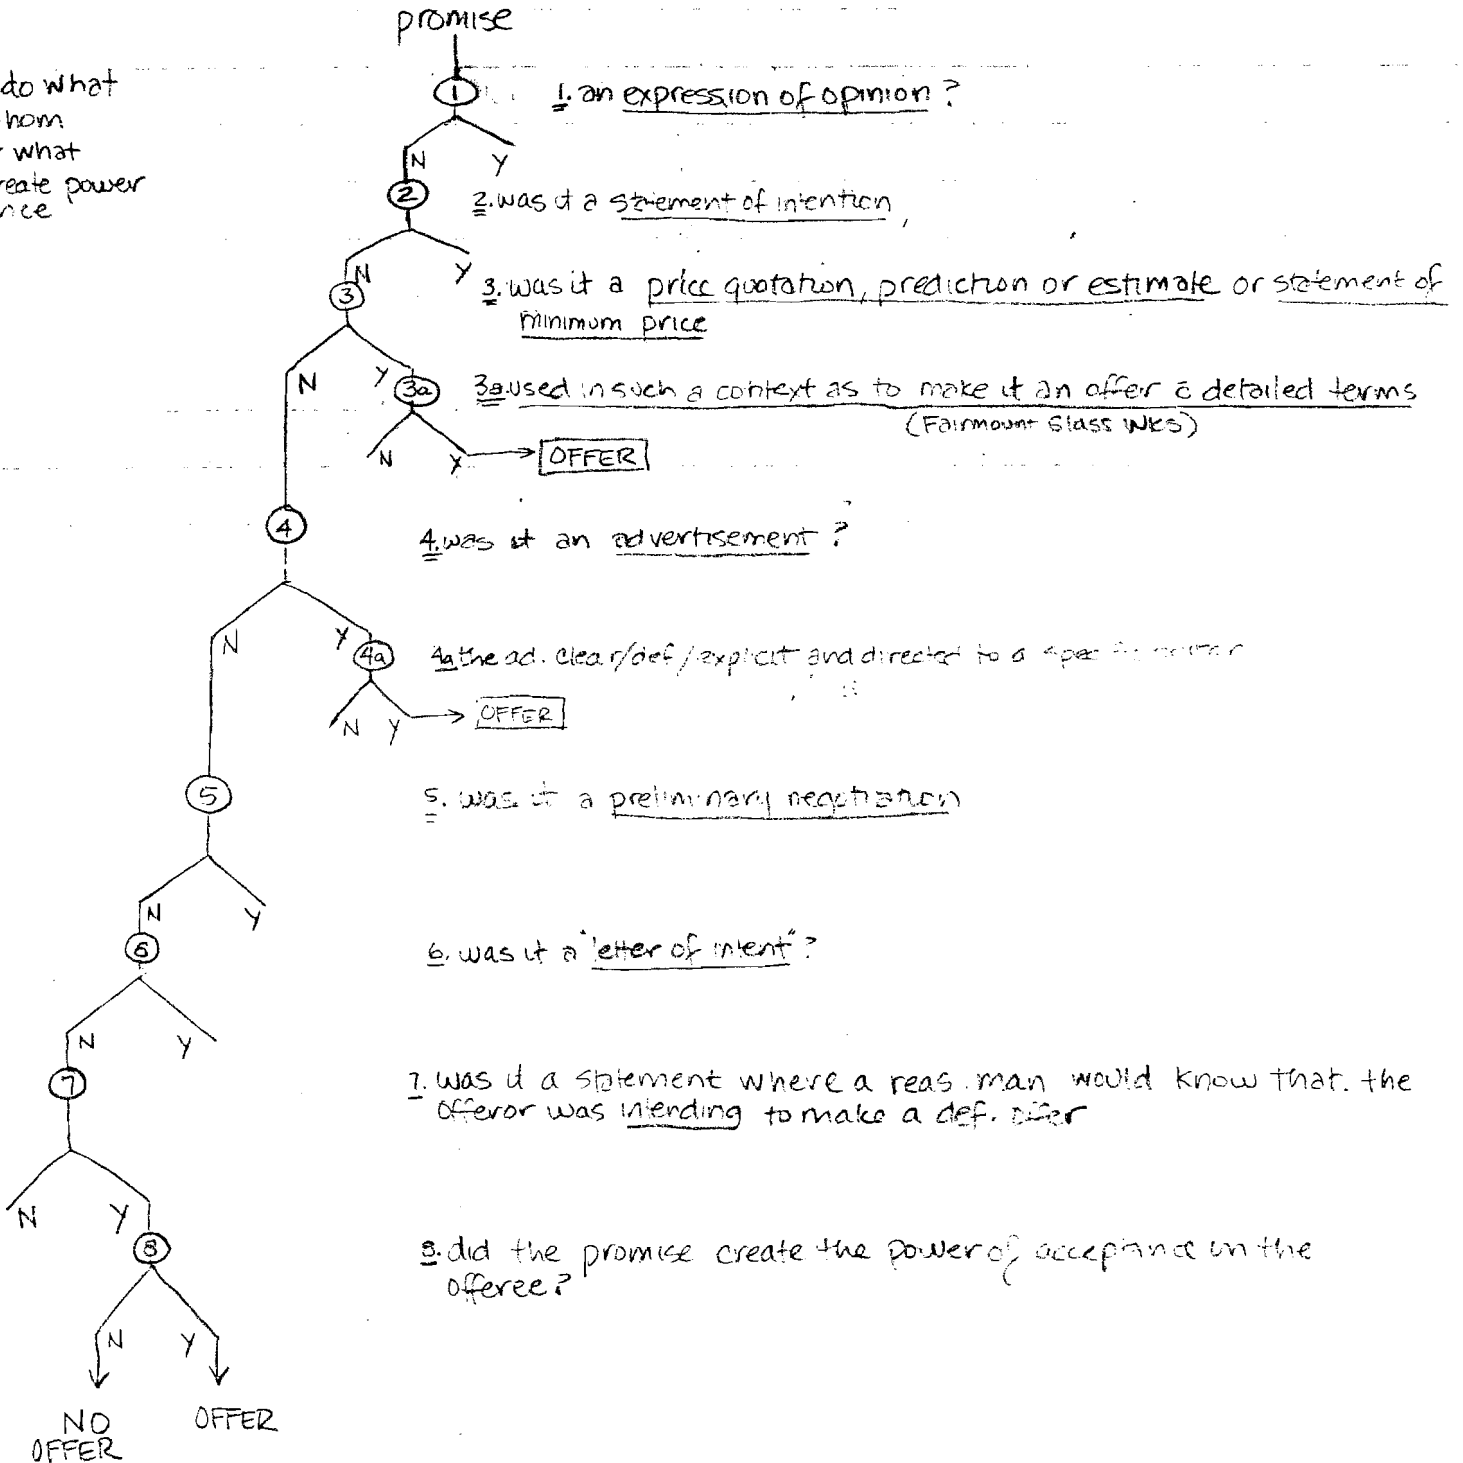 promise
do what
hom
what
reate power
nce
1
1. an expression of opinion?
N Y
2
2. was it a statement of intention,
N Y
3
3. was it a price quotation, prediction or estimate or statement of
minimum price
N Y
3a
3a. used in such a context as to make it an offer c̄ detailed terms
(Fairmount Glass Wks)
N Y
OFFER
4
4. was it an advertisement?
N Y
4a
4a the ad. clear/def/explicit and directed to a
N Y
OFFER
5
5. was it a preliminary negotiation
N Y
6
6. was it a "letter of intent"?
N Y
7
7. was it a statement where a reas. man would know that. the
offeror was intending to make a def. offer
N Y
8
8. did the promise create the power of acceptance in the
offeree?
N Y
NO
OFFER
OFFER